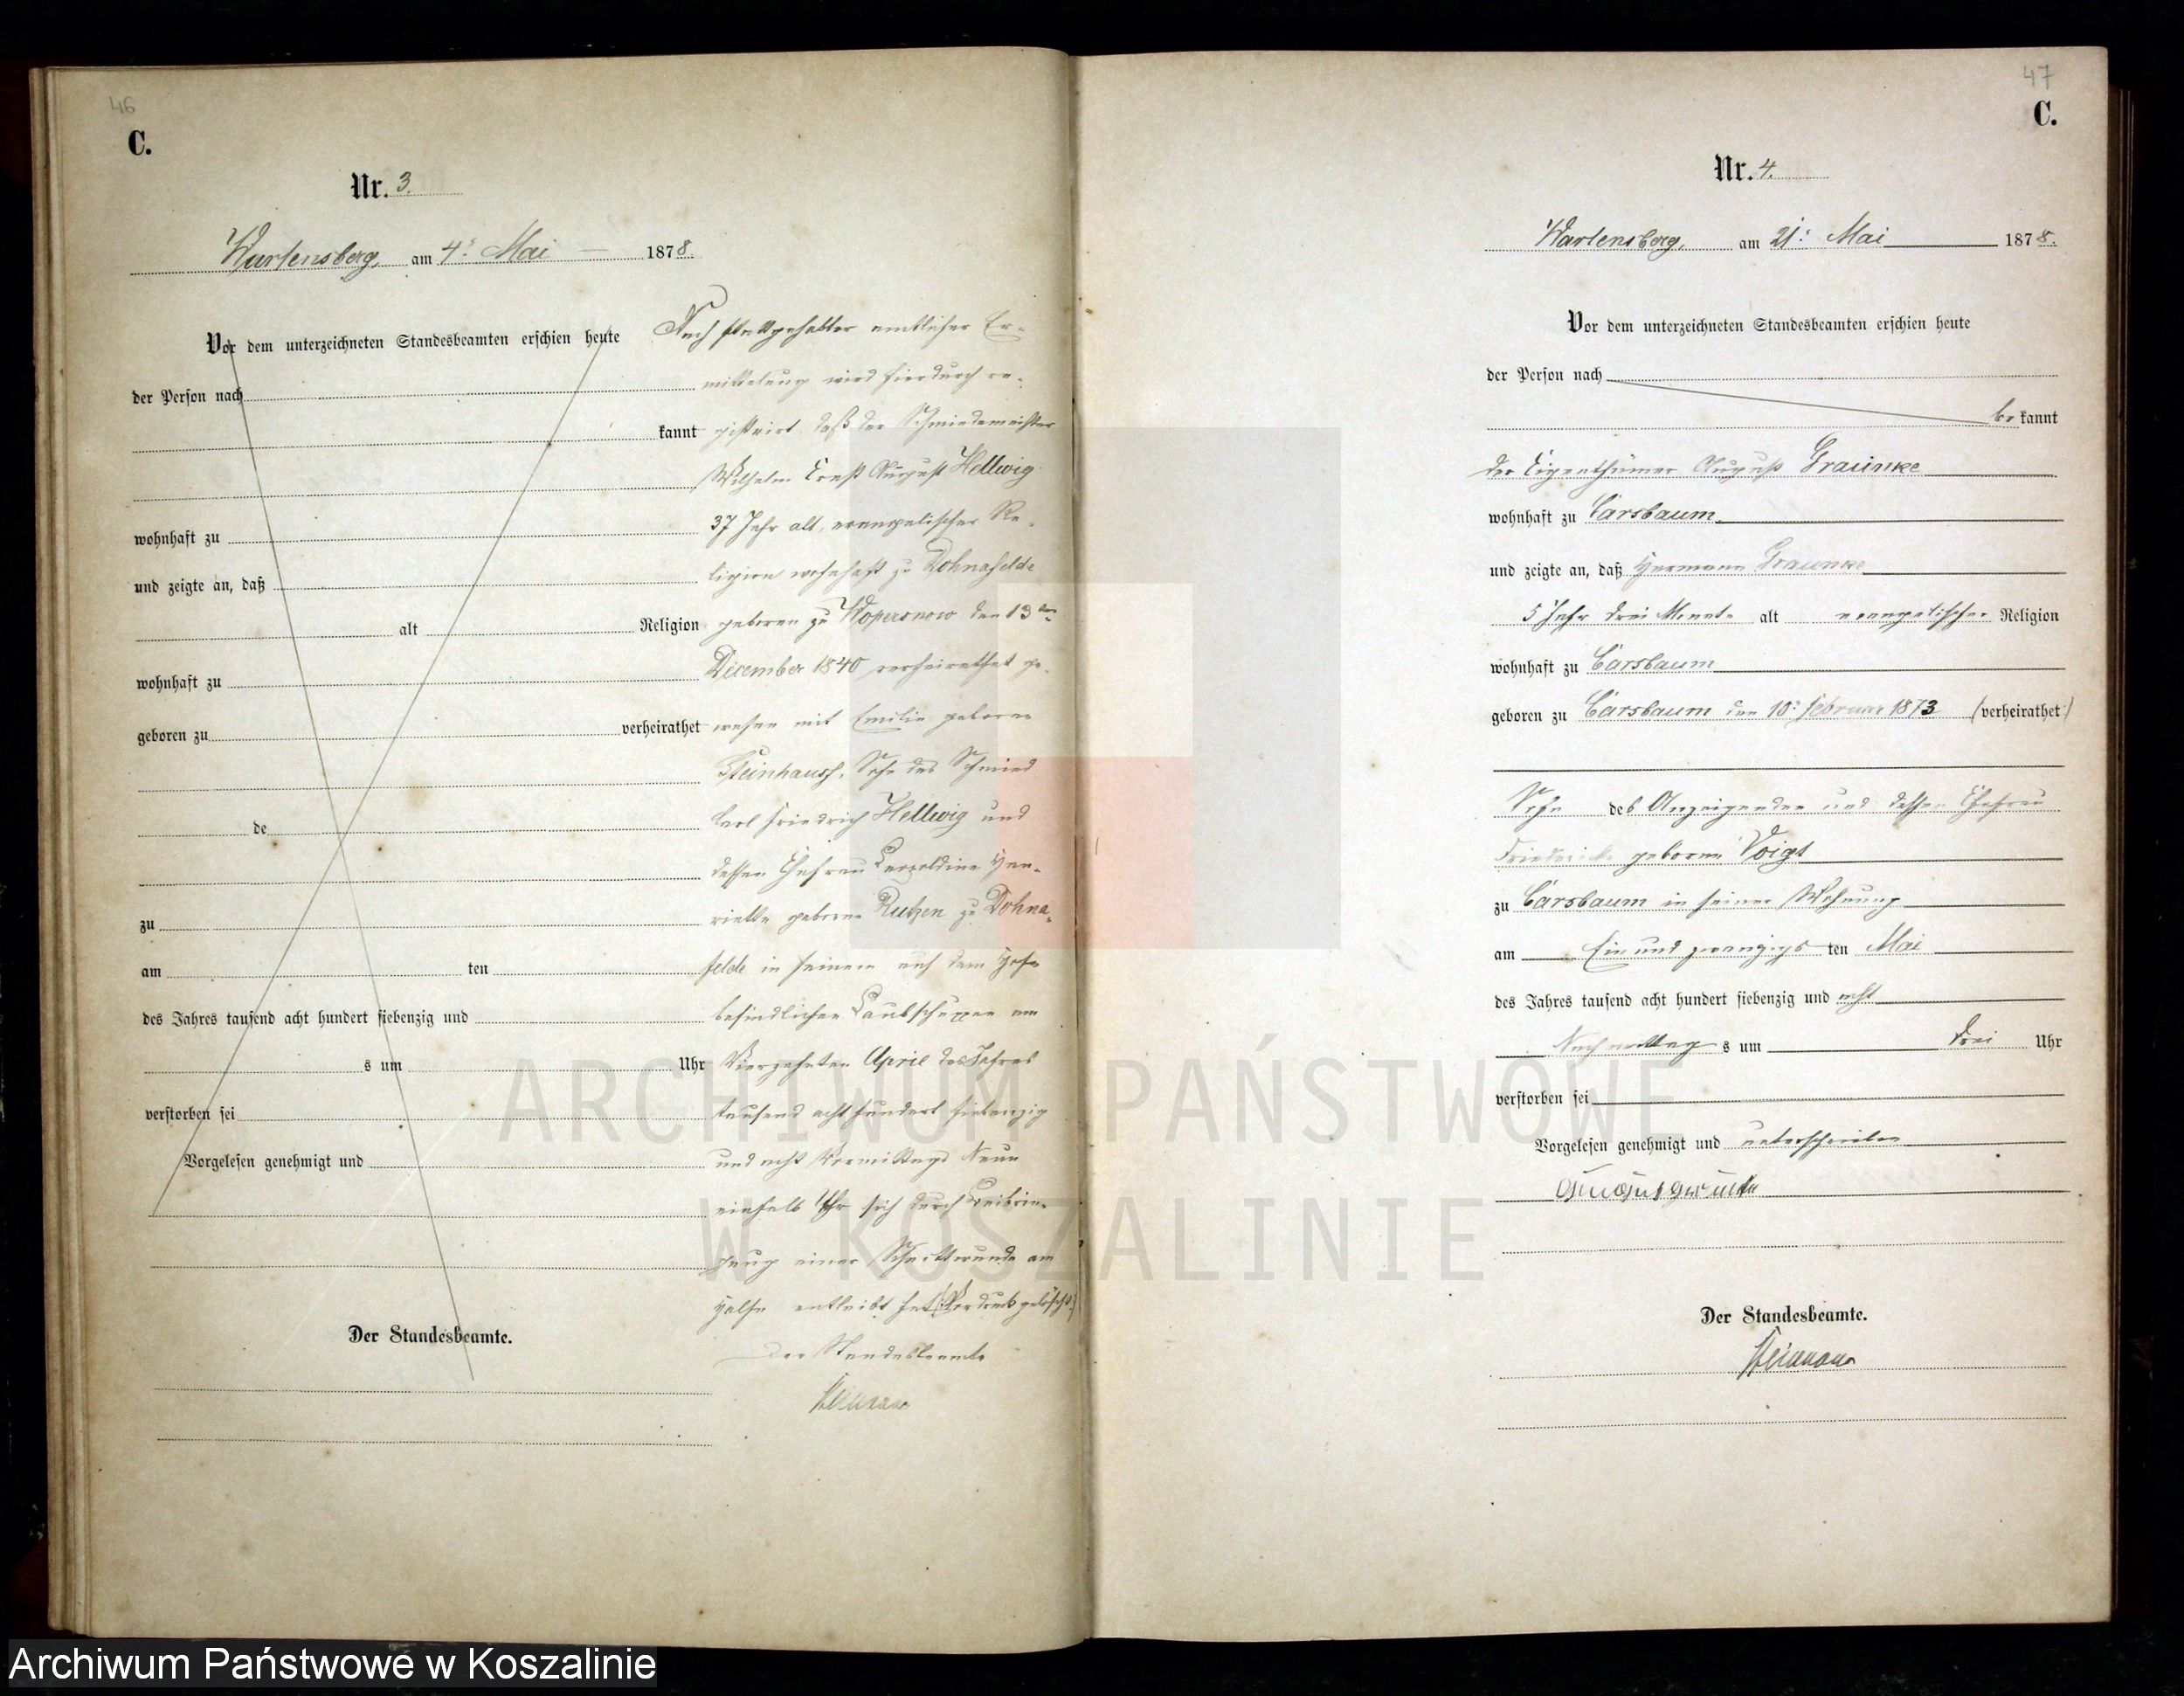 46
C.
Nr. 3.
Wartensberg, am 4t Mai — 1878.
Vor dem unterzeichneten Standesbeamten erschien heute
der Person nach
kannt
wohnhaft zu
und zeigte an, daß
alt Religion
wohnhaft zu
geboren zu verheirathet
de
zu
am ten
des Jahres tausend acht hundert siebenzig und
s um Uhr
verstorben sei
Vorgelesen genehmigt und
Der Standesbeamte.
Nach stattgehabter amtlicher Er-
mittelung wird hierdurch re-
gistrirt, daß der Schmiedemeister
Wilhelm Ernst August Hellwig
37 Jahr alt, evangelischer Re-
ligion wohnhaft zu Dohnafelde
geboren zu Wopersnow den 13ten
Dicember 1840 verheirathet ge-
wesen mit Emilie geborne
Sohn des Schmied
Carl Friedrich Hellwig und
dessen Ehefrau Leopoldine Hen-
riette geborne Rutzen zu Dohna-
felde in seinem auf dem Hofe
befindlichen Laubschuppen am
Vierzehnten April des Jahres
tausend acht hundert siebenzig
und acht Vormittags Neun
einhalb Uhr sich durch Beibrin-
gung einer Schnittwunde am
Halse entleibt hat (:Vordruck gelöscht:)
Der Standesbeamte
47
C.
Nr. 4.
Wartensberg, am 21t Mai 1878.
Vor dem unterzeichneten Standesbeamten erschien heute
der Person nach
be kannt
der Eigenthümer August Graunke
wohnhaft zu Carsbaum
und zeigte an, daß Hermann Graunke
5 Jahr drei Monate alt evangelischer Religion
wohnhaft zu Carsbaum
geboren zu Carsbaum den 10t Februar 1873 (verheirathet:)
Sohn des Anzeigenden und dessen Ehefrau
Friederike geborne Voigt
zu Carsbaum in seiner Wohnung
am Ein und zwanzigs ten Mai
des Jahres tausend acht hundert siebenzig und acht
Nachmittag s um drei Uhr
verstorben sei
Vorgelesen genehmigt und unterschrieben
Der Standesbeamte.
ARCHIWUM PAŃSTWOWE
W KOSZALINIE
Archiwum Państwowe w Koszalinie